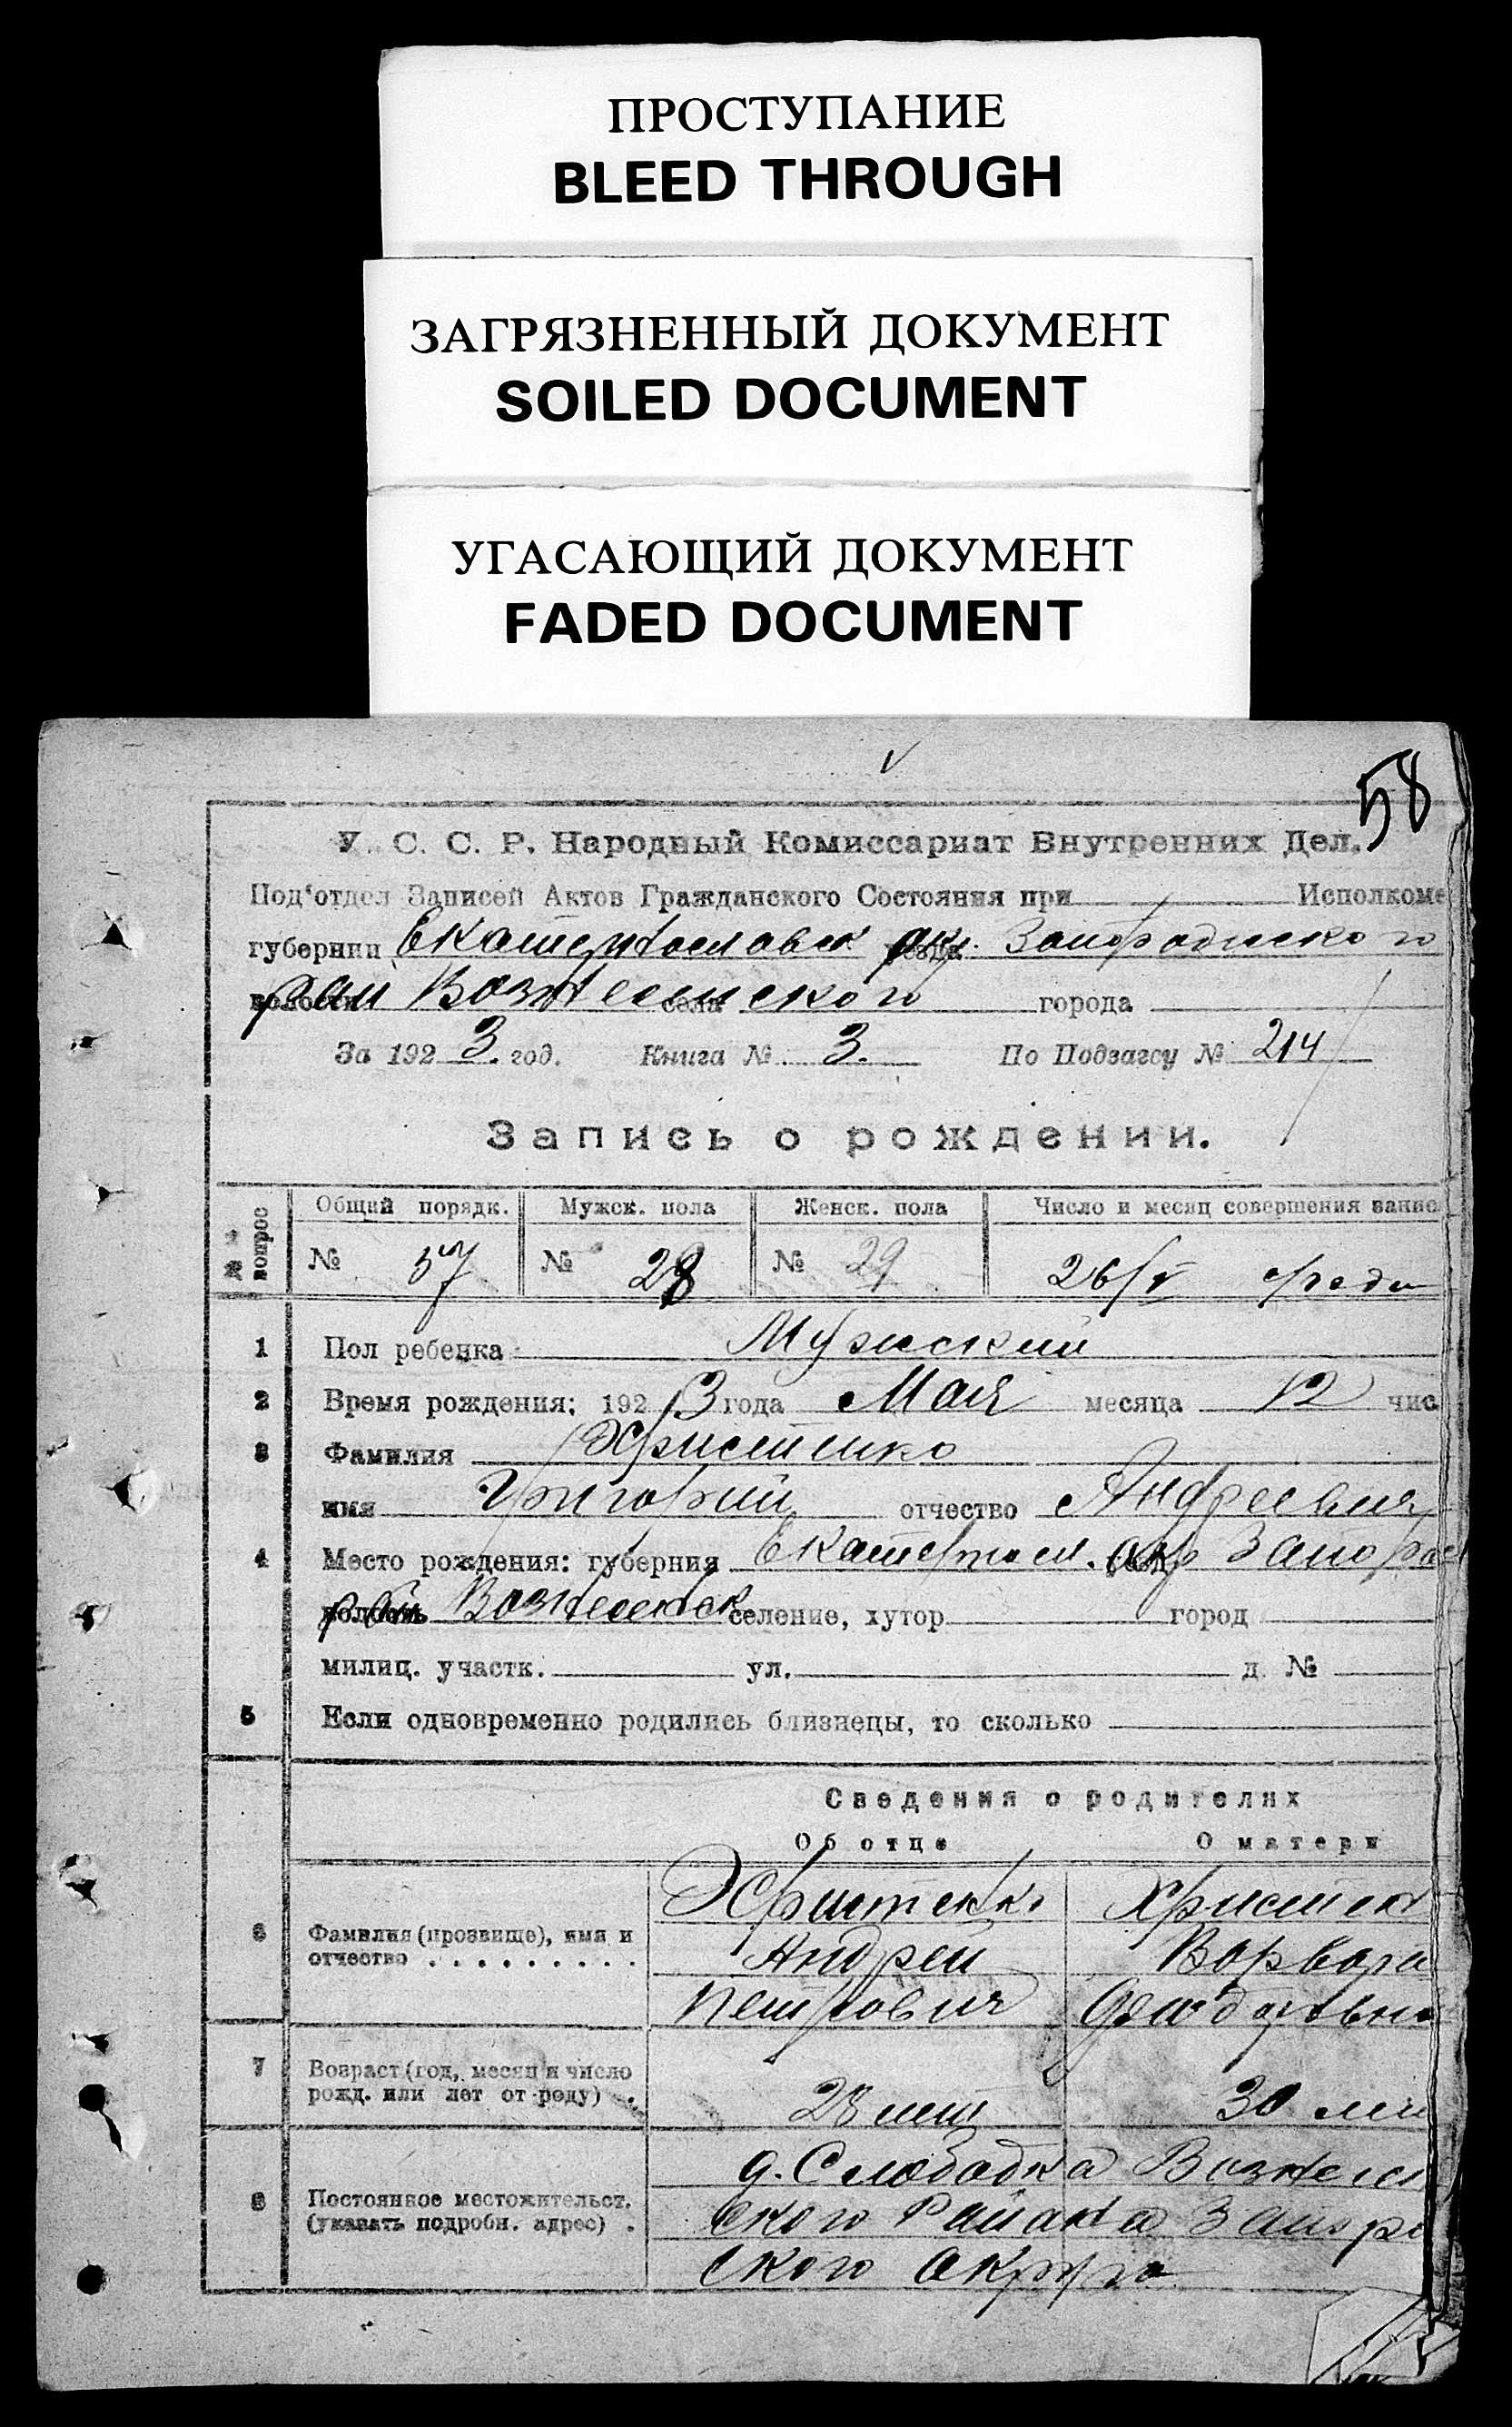 ПРОСТУПАНИЕ
BLEED THROUGH
ЗАГРЯЗНЕННЫЙ ДОКУМЕНТ
SOILED DOCUMENT
УГАСАЮЩИЙ ДОКУМЕНТ
FADED DOCUMENT
58
У. С. С. Р. Народный Комиссариат Внутренних Дел.
Под'отдел Записей Актов Гражданского Состояния при Исполкоме
губернии Екатеринославск окр.
рай Вознесенского города
За 1923. год. Книга № 3. По Подзагсу № 214
Запись о рождении.
вопрос Общий порядк. Мужск. пола Женск. пола Число и месяц совершения запис
№ 57 № 28 № 29 26/V
1 Пол ребенка Мужский
2 Время рождения: 1923 года Мая месяца 12 чис
3 Фамилия Христенко
имя Григорий отчество Андреевич
4 Место рождения: губерния Екатериносл. окр Запорож
рай Вознесенск селение, хутор город
милиц. участк. ул. д. №
5 Если одновременно родились близнецы, то сколько
Сведения о родителях
Об отце О матери
6 Фамилия (прозвище), имя и отчество Христенко Христен
Андрей Варвара
Петрович
7 Возраст (год, месяц и число
рожд. или лет от роду) . 28 лет 30 ле
8 Постоянное местожительст.
(указать подробн. адрес) . д. Слободка Вознесен
ского Района Запоро
ского Округа